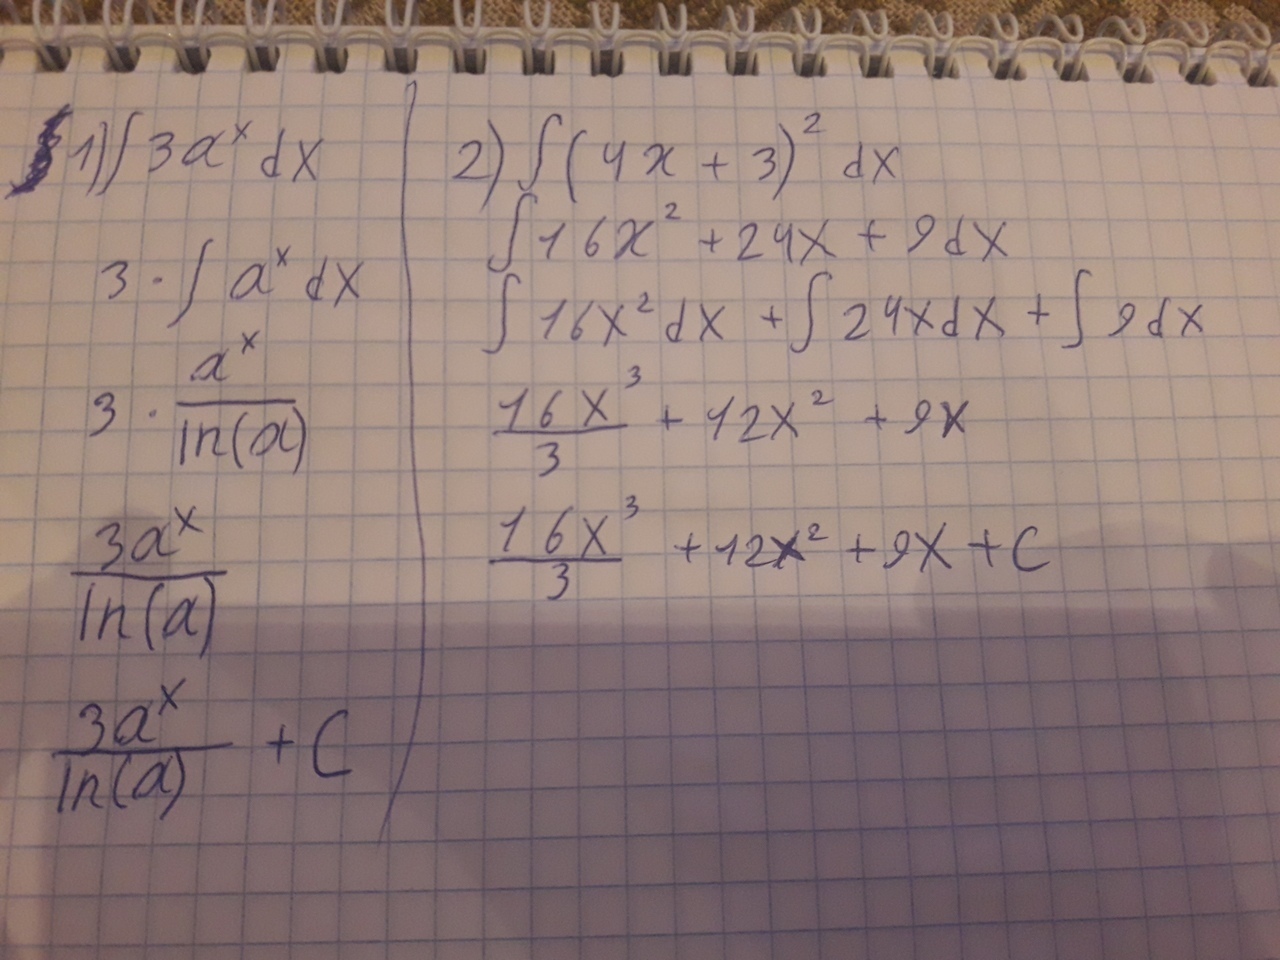 1) ∫ 3aˣ dx
3 · ∫ aˣ dx
3 · aˣ / ln(a)
3aˣ / ln(a)
3aˣ / ln(a) + C
2) ∫ (4x + 3)² dx
∫ 16x² + 24x + 9dx
∫ 16x² dx + ∫ 24xdx + ∫ 9dx
16x³ / 3 + 12x² + 9x
16x³ / 3 + 12x² + 9x + C